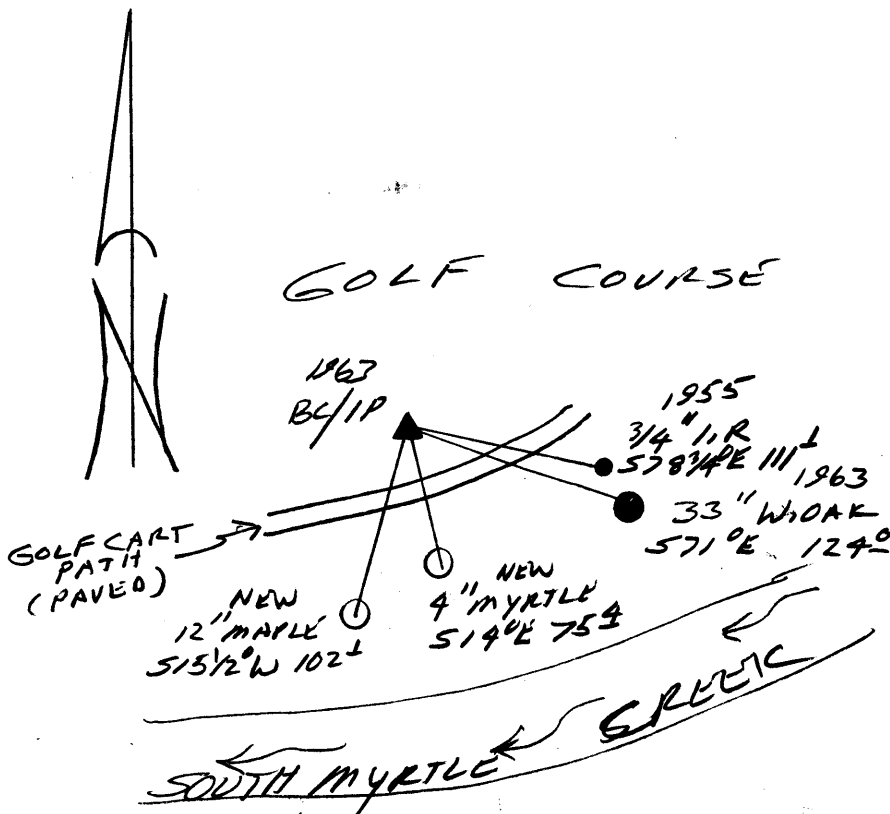 GOLF COURSE
1963
BC/IP
1955
3/4" I.R
S78 3/4°E 111¹
1963
33" W.OAK
S71°E 124⁰
GOLF CART
PATH
(PAVED)
NEW
12" MAPLE
S15 1/2°W 102¹
NEW
4" MYRTLE
S14°E 75⁴
SOUTH MYRTLE CREEK